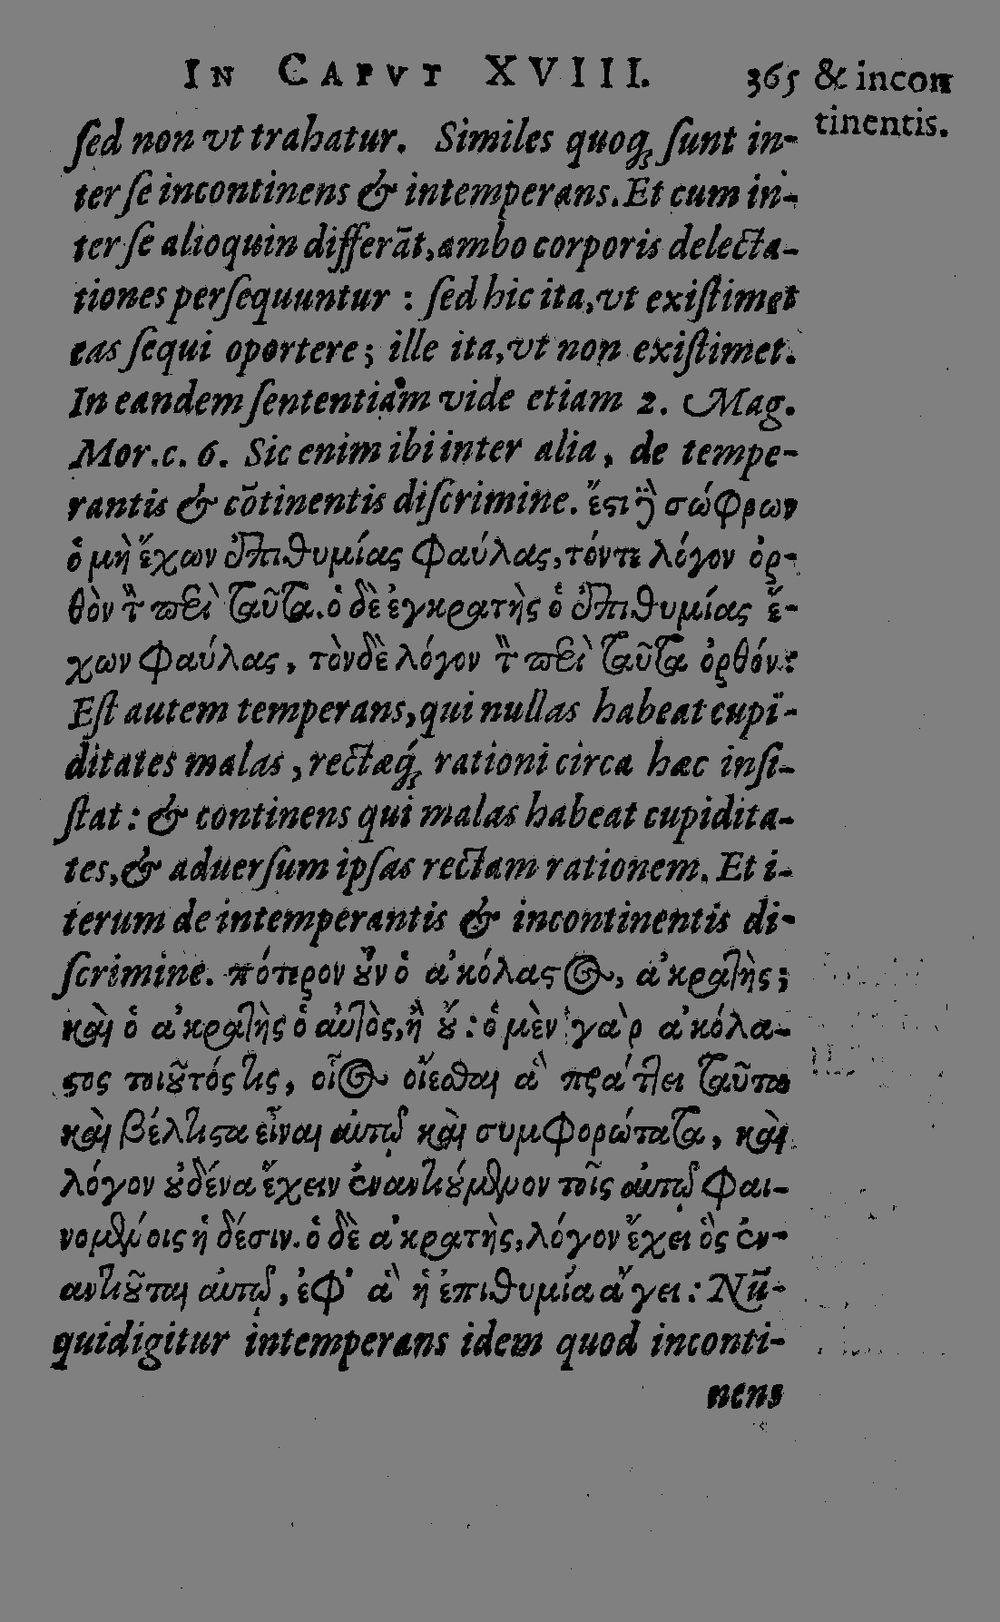 IN CAPVT XVIII. 365
& incon
tinentis.
sed non vt trahatur. Similes quoq; sunt in-
ter se incontinens & intemperans. Et cum in-
ter se alioquin differãt, ambo corporis delecta-
tiones persequuntur : sed hic ita, vt existimet
eas sequi oportere; ille ita, vt non existimet.
In eandem sententiam vide etiam 2. Mag.
Mor. c. 6. Sic enim ibi inter alia, de tempe-
rantis & cõtinentis discrimine. ἔστι γὰρ σώφρων
ὁ μὴ ἔχων ἐπιθυμίας φαύλας, τόντε λόγον ὀρ-
θὸν τὸν περὶ ταῦτα. ὁ δὲ ἐγκρατὴς ὁ ἐπιθυμίας ἔ-
χων φαύλας, τὸνδὲ λόγον τὸν περὶ ταῦτα ὀρθόν:
Est autem temperans, qui nullas habeat cupi-
ditates malas, rectæq́; rationi circa hæc insi-
stat: & continens qui malas habeat cupidita-
tes, & aduersum ipsas rectam rationem. Et i-
terum de intemperantis & incontinentis di-
scrimine. πότερον οὖν ὁ ἀκόλαστος, ἀκρατής;
καὶ ὁ ἀκρατὴς ὁ αὐτὸς, ἢ οὔ: ὁ μὲν γὰρ ἀκόλα-
στος τοιοῦτός τις, οἷος οἴεσθαι ἃ πράττει ταῦτα
καὶ βέλτιστα εἶναι αὐτῷ καὶ συμφορώτατα, καὶ
λόγον οὐδένα ἔχειν ἐναντιούμενον τοῖς αὐτῷ φαι-
νομένοις ἡδέσιν. ὁ δὲ ἀκρατὴς, λόγον ἔχει ὃς ἐν-
αντιοῦται αὐτῷ, ἐφ' ἃ ἡ ἐπιθυμία ἄγει: Nũ-
quid igitur intemperans idem quod inconti-
nens